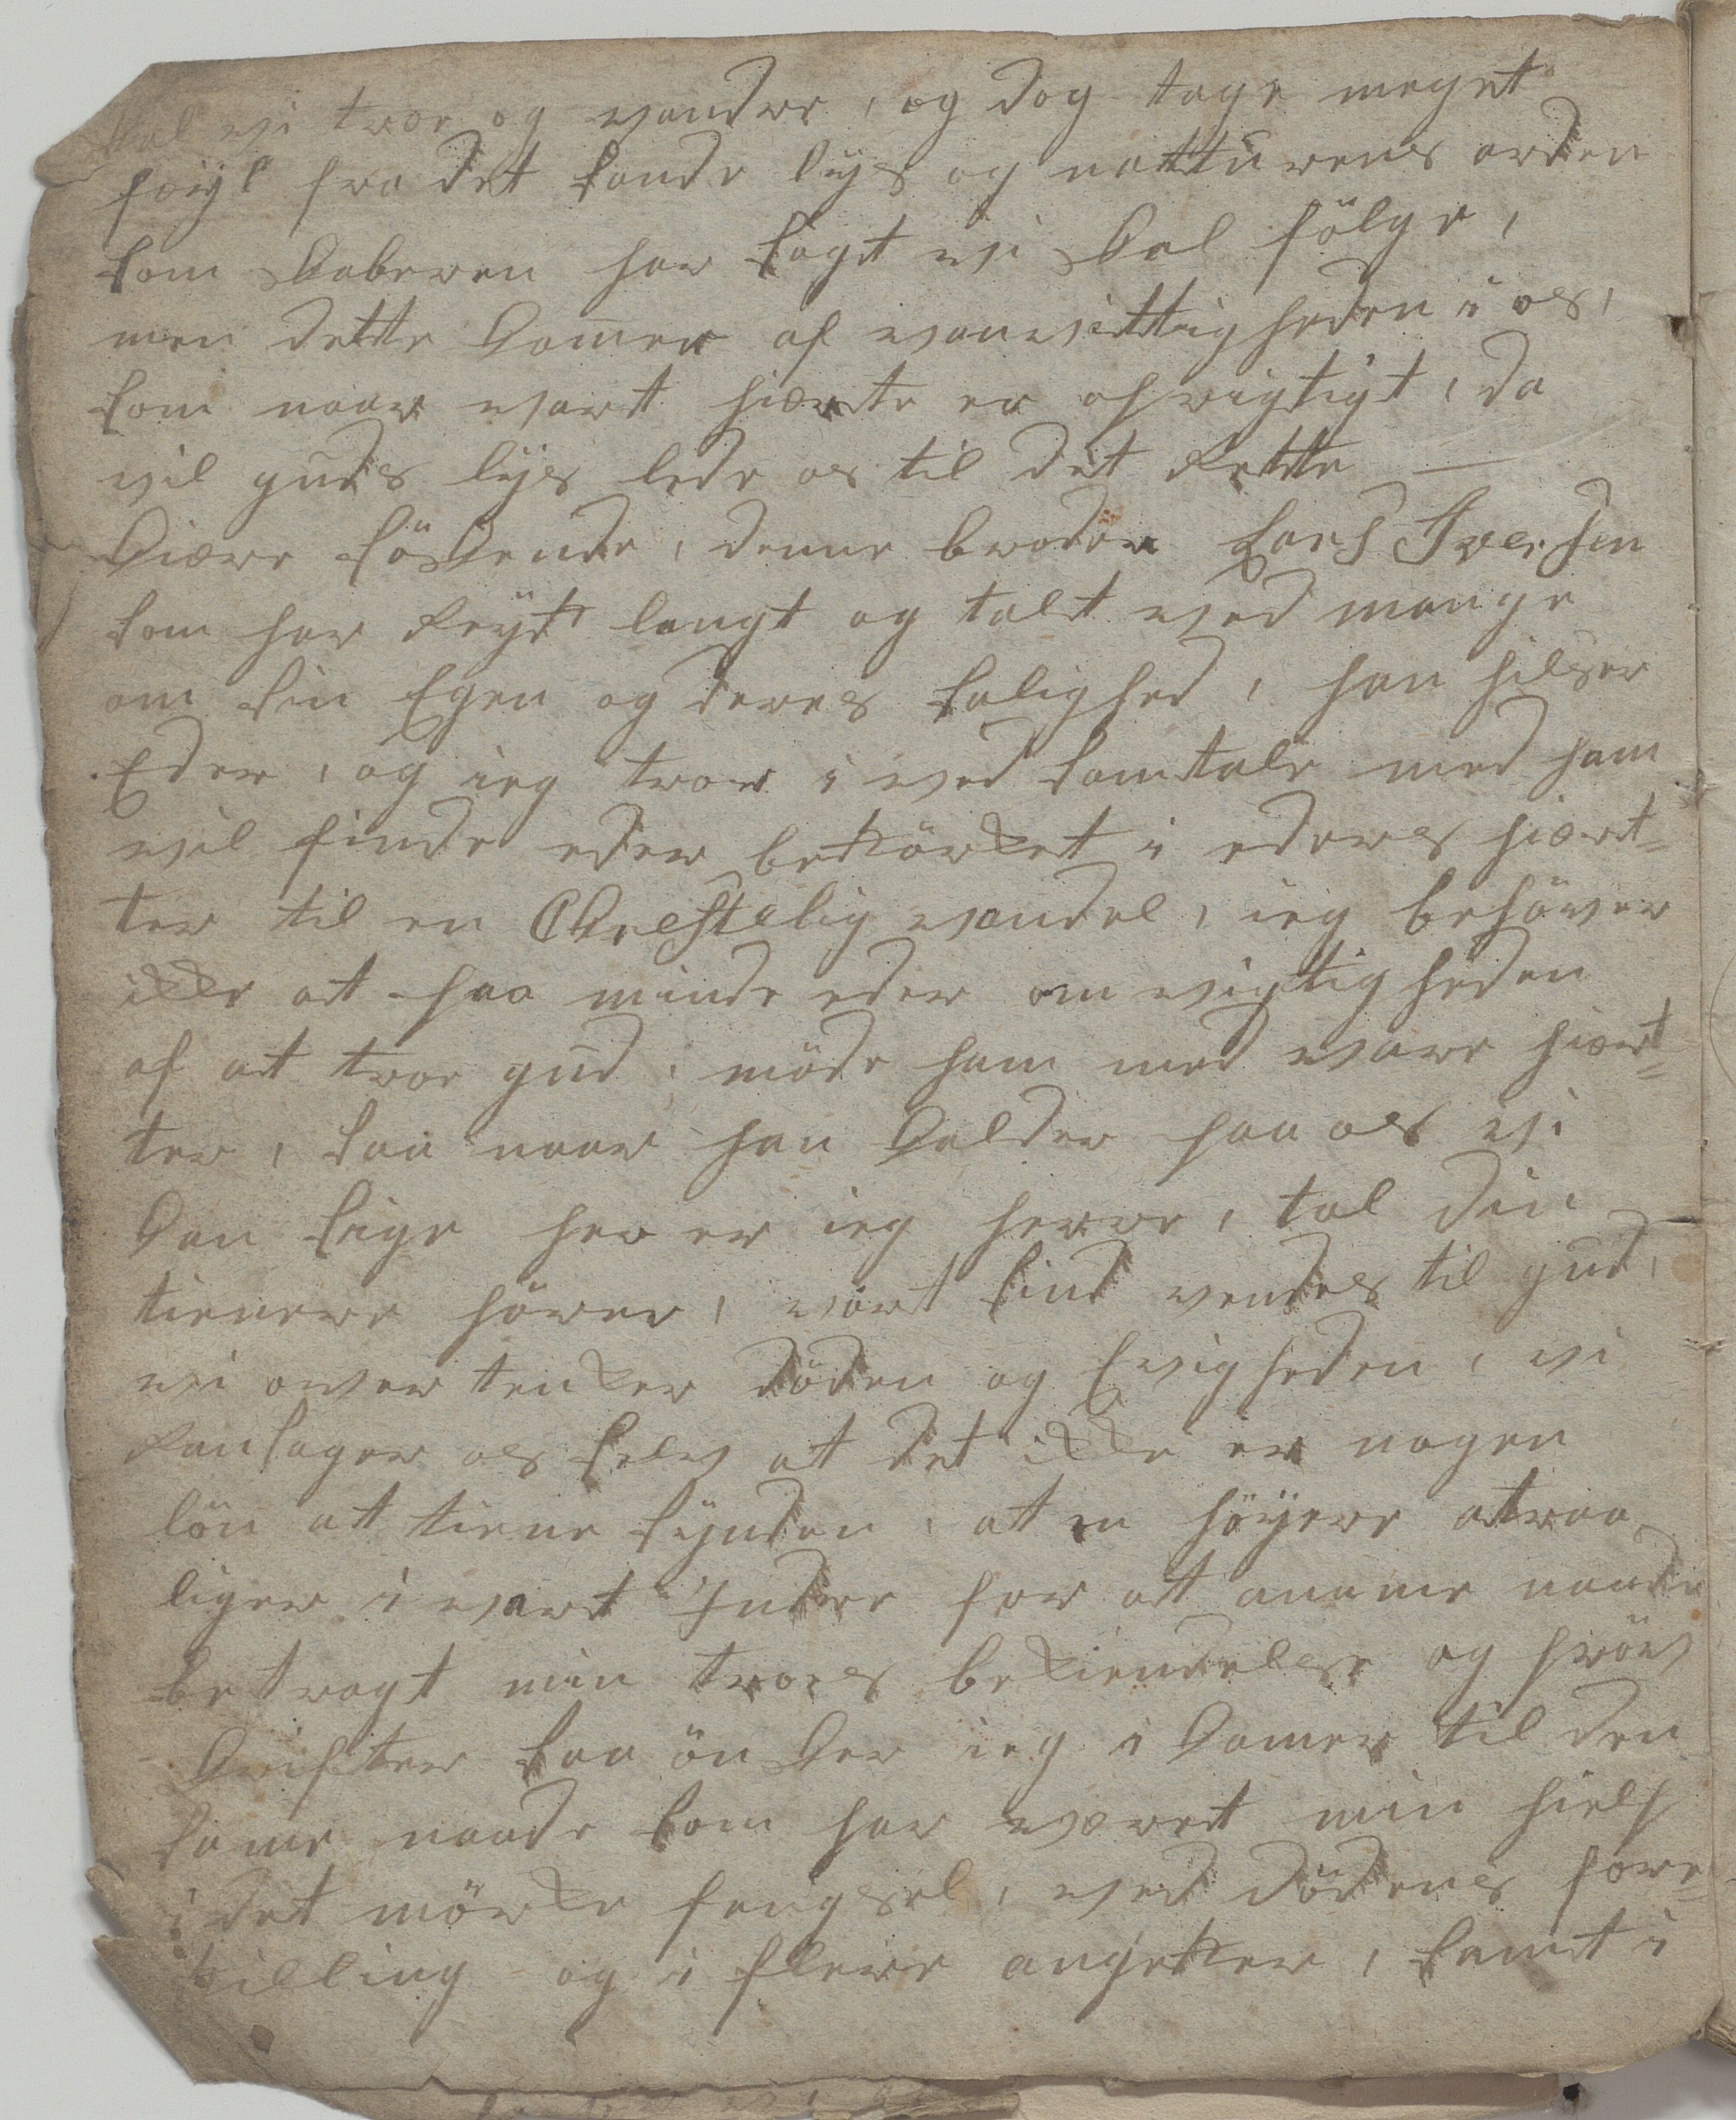 skal vi troe og vandre, og dog tage meget
feiyl fra det sande lÿs og natturens orden
som skaberen har sagt vi skal fölge,
men dette komer af vanvittigheden i os,
som naar vort hierte er ofrigtigt, da
vil guds lÿs lede os til det rette —
kiære söskende, denne broder Lars Iversen
som har reÿst langt og talt ved mange
om sin Egen og deres salighed, han hilser
Eder, og ieg troer i ved samtale med ham
vil finde eder bestörket i ederes hiert-
ter til en Christelig vandel, ieg behöver
ikke at paa minde eder om vigtigheden
af at troe gud, möde ham med vare hiert-
ter, saa naar han kalder paa os vi
kan sige her er ieg herre, tal din
tienere hörer, vort sind vendes til gud,
vi over tenker döden og Evigheden, vi
ransager os selv at det ikke er nogen
lön at tiene sÿnden, at en höÿere atraa
liger i vort Indre for at aname naade
betragt min troes bekiendelse og pröv
skrifter saa önsker ieg i komer til den
same naade som har veret min hielp
i det mörke fengsel, ved dödens fore-
stilling og i flere angester, samt i